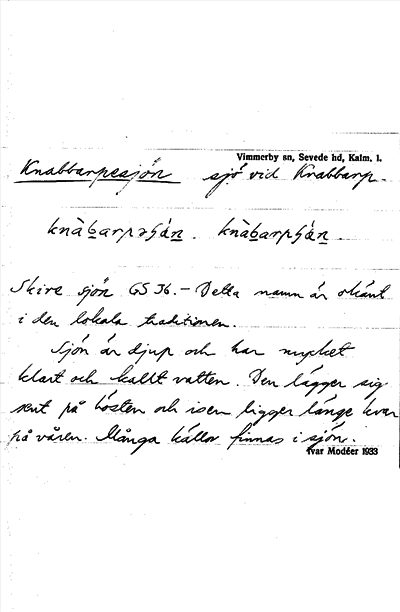 Vimmerby sn, Sevede hd, Kalm. l.
Knabbarpesjön sjö vid Knabbarp.
knàbarpəʃán. knàbarpʃán.
Skire sjön GS 36. – Detta namn är okänt
i den lokala traditionen.
Sjön är djup och har mycket
klart och kallt vatten. Den lägger sig
sent på hösten och isen ligger länge kvar
på våren. Många källor finnas i sjön.
Ivar Modéer 1933